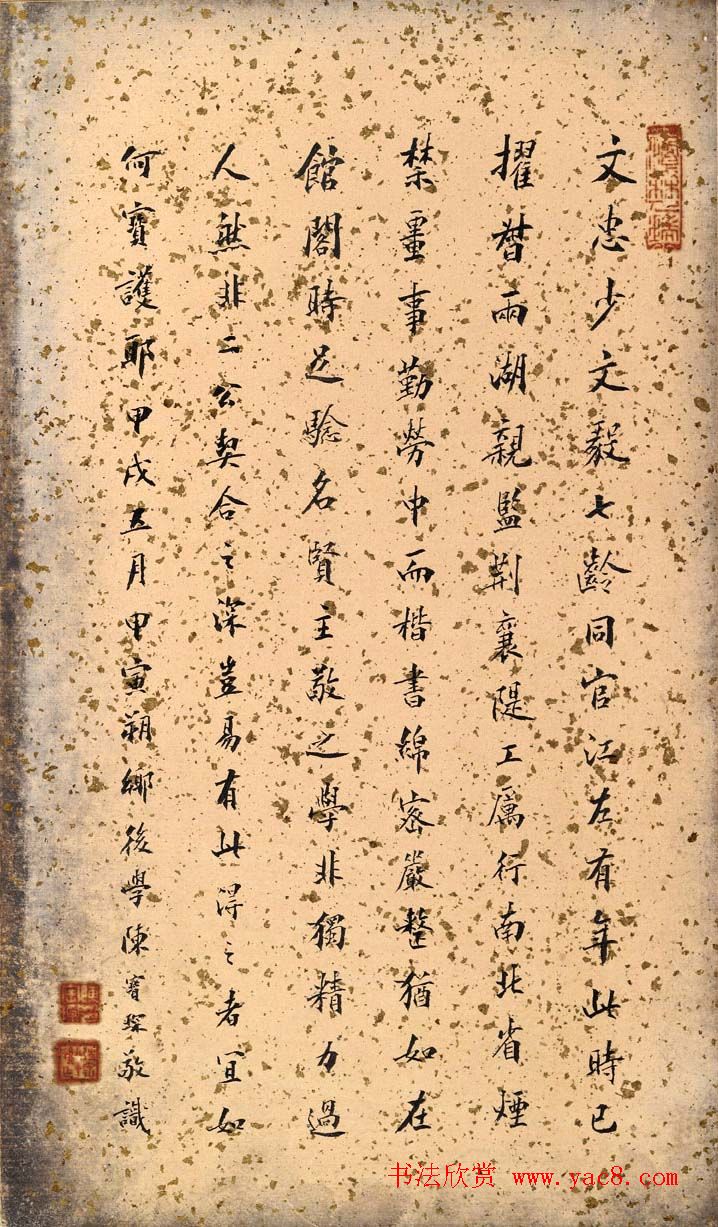 文忠少文毅七齡同官江左有年此時已
擢督兩湖親監荆襄隄工厲行南北省煙
禁畺事勤勞中而楷書綿密嚴整猶如在
館閣時足驗名賢主敬之學非獨精力過
人然非二公契合之深豈易有此得之者宜如
何寶護耶甲戌五月甲寅朔鄉後學陳寶琛敬識
书法欣赏 www.yac8.com